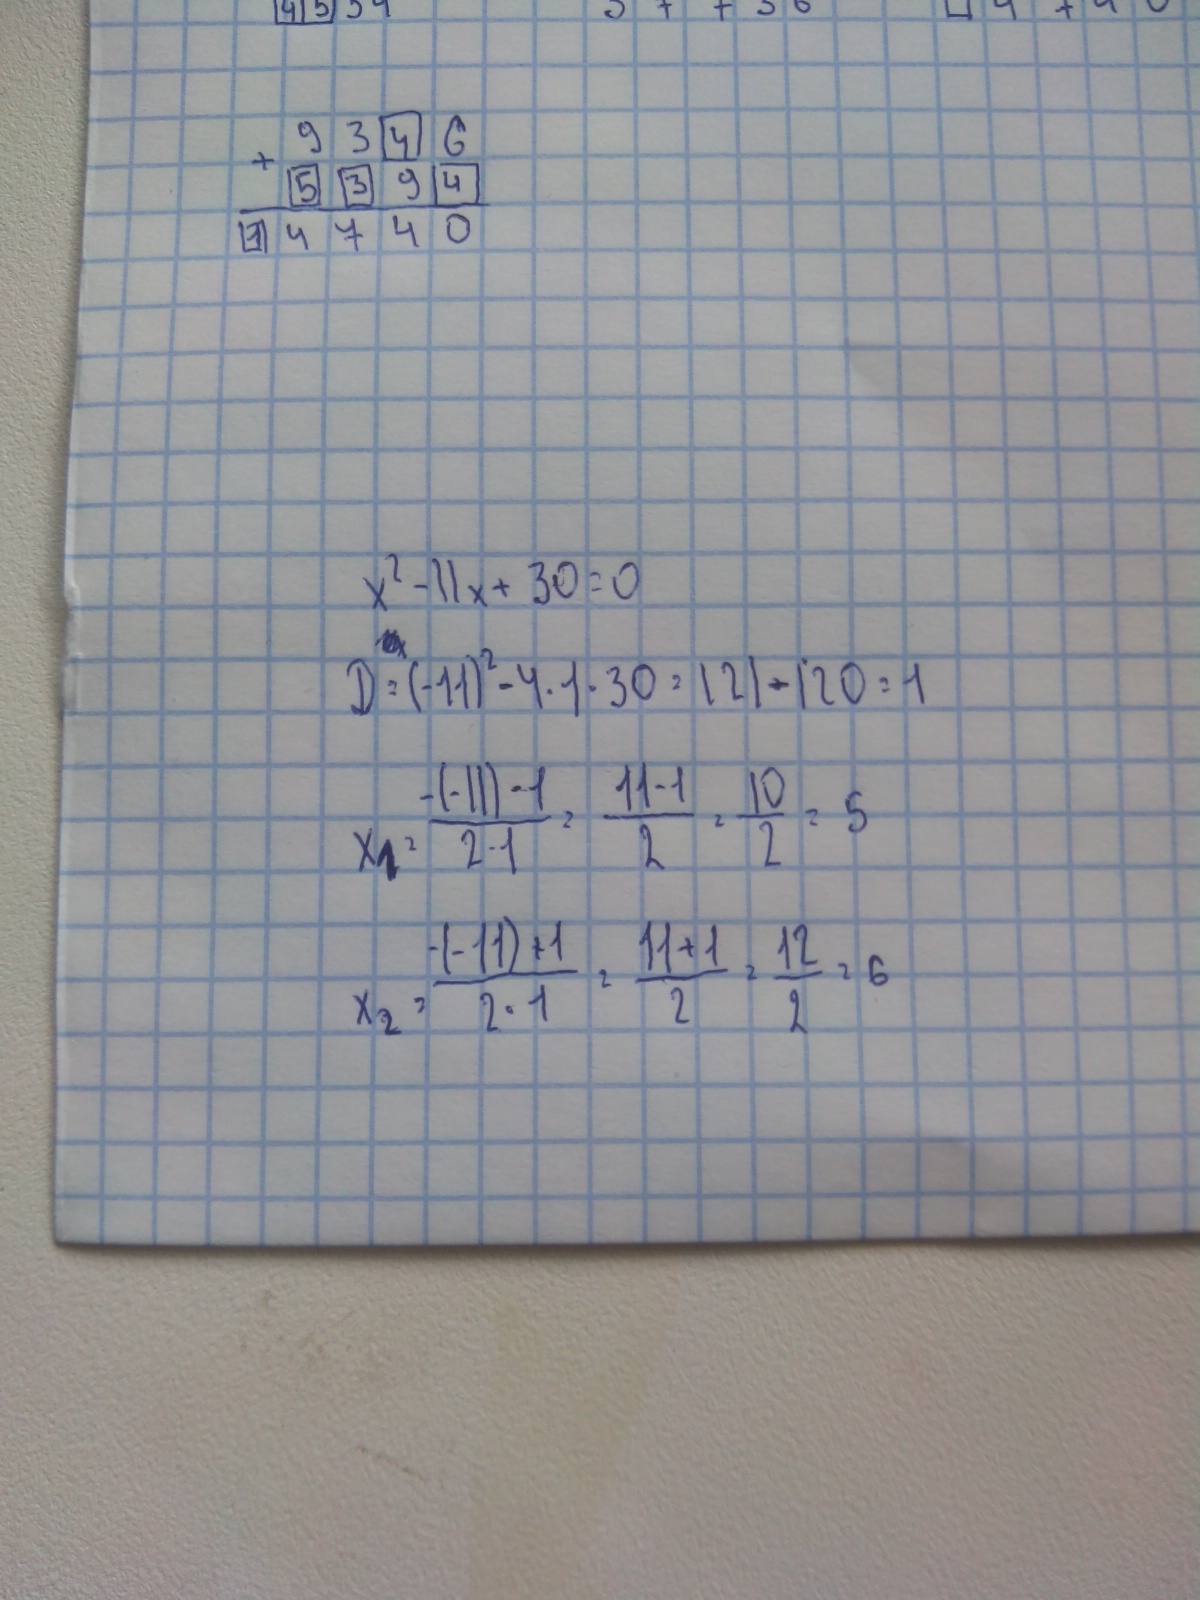 9 3 4 6
+ 5 3 9 4
1 4 7 4 0
x² - 11x + 30 = 0
D = (-11)² - 4 · 1 · 30 = 121 - 120 = 1
x₁ = -(-11) - 1 / 2 · 1 = 11 - 1 / 2 = 10 / 2 = 5
x₂ = -(-11) + 1 / 2 · 1 = 11 + 1 / 2 = 12 / 2 = 6